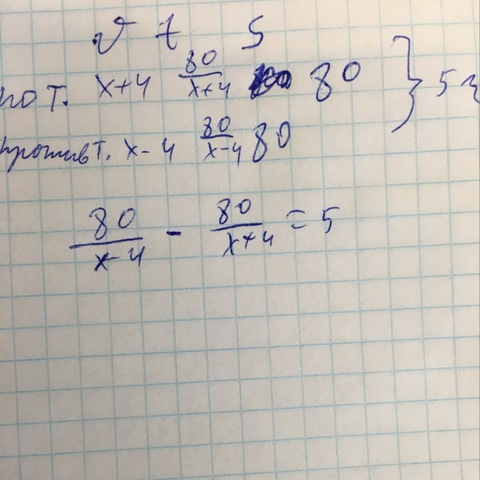 v t S
по т. x+4 80/(x+4) 80 } 5 ч
против т. x-4 80/(x-4) 80
80/(x-4) - 80/(x+4) = 5